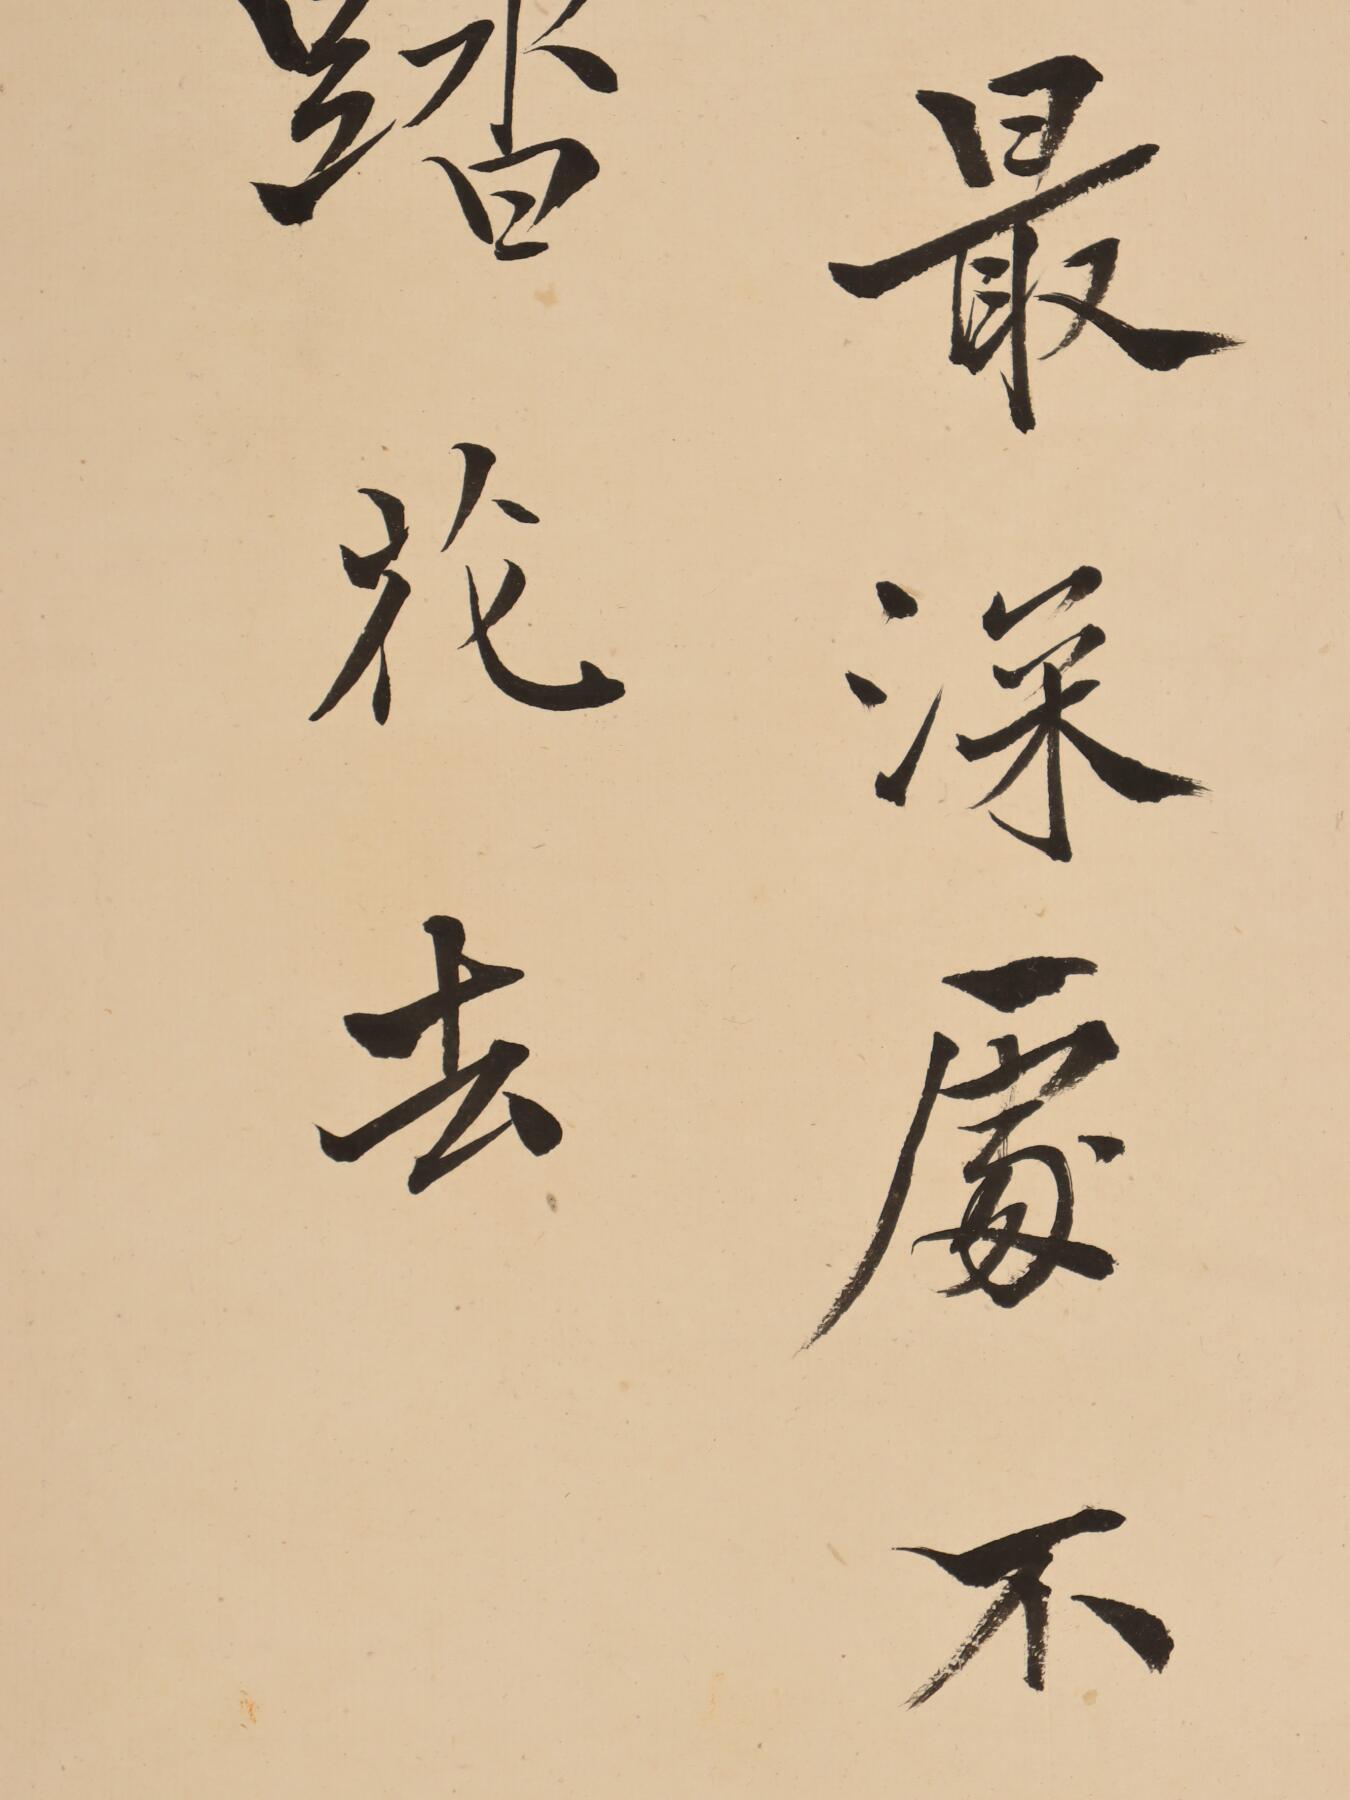 最深處不
踏花去